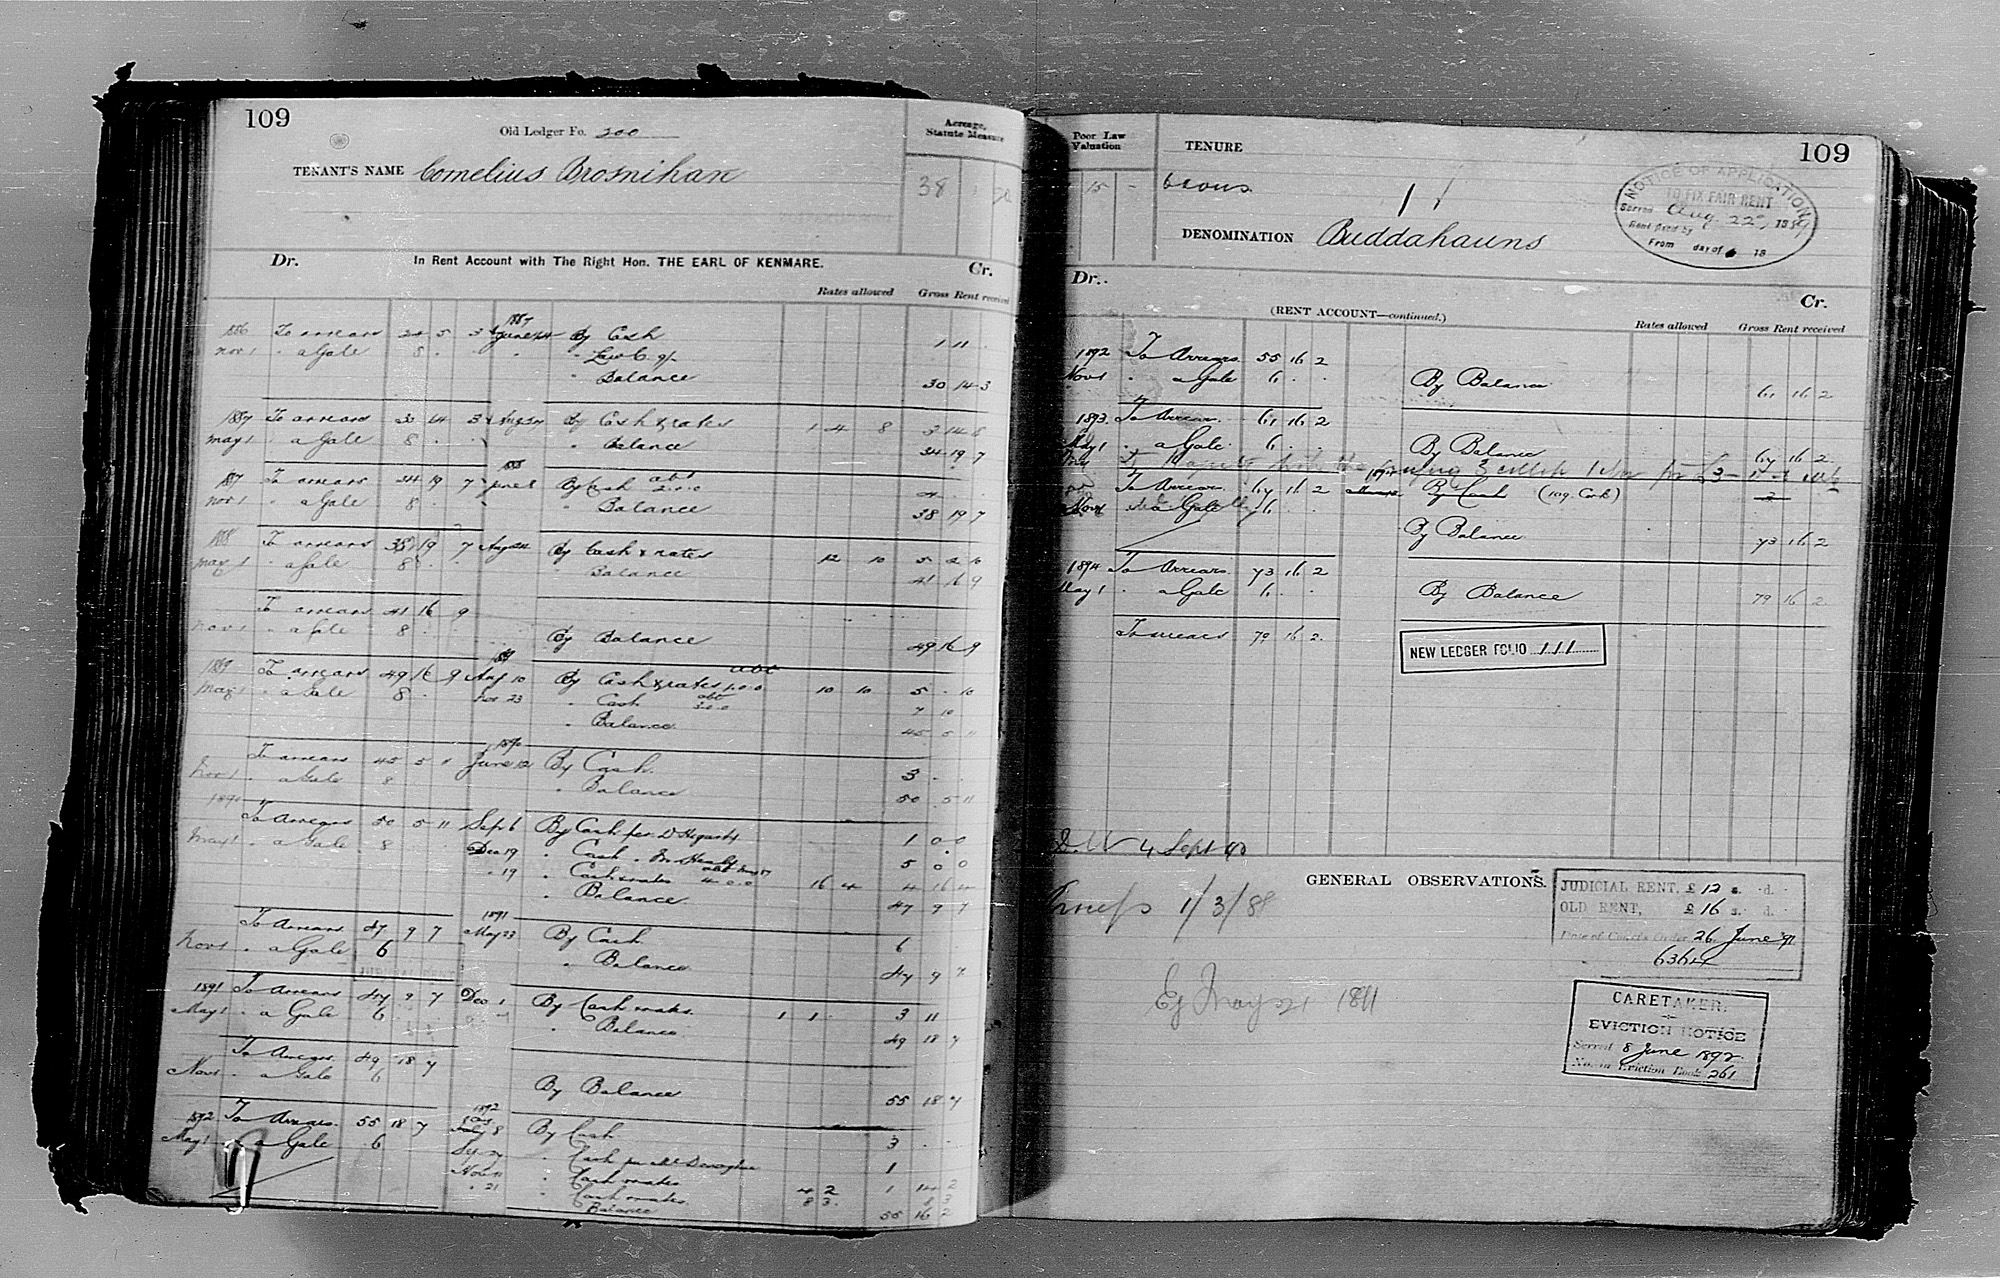 109
Old Ledger Fo. 200
Acreage, Statute Measure
TENANT'S NAME Cornelius Brosnihan
38
Dr. In Rent Account with The Right Hon. THE EARL OF KENMARE. Cr.
Rates allowed Gross Rent received
1886 To arrears 24 5 3 1887 June 24 By Cash 1 11
Nov 1 " a Gale 8 . . " Law C.
" Balance 30 14 3
1887 To arrears 30 14 3 By Cash & rates 14 8 3 14 8
May 1 " a Gale 8 . . " Balance 34 19 7
1887 To arrears 34 19 7 1888 June 8 By Cash abt 2.0.0 4 . .
Nov 1 " a Gale 8 . . " Balance 38 19 7
1888 To arrears 38 19 7 By Cash & rates 12 10 5 2 10
May 1 " a Gale 8 . . " Balance 41 16 9
To arrears 41 16 9
Nov 1 " a Gale 8 . . By Balance 49 16 9
1889 To arrears 49 16 9 1889 Aug 10 By Cash & rates abt 10 10 5 . 10
May 1 " a Gale 8 . . Nov 23 " Cash abt 3.0.0 7 10
" Balance 45 5 11
To arrears 45 5 11 1890 June 12 By Cash 3 . .
Nov 1 " a Gale 8 " Balance 50 5 11
1890 To Arrears 50 5 11 Sept 6 By Cash per D Hegarty 1 0 0
May 1 " a Gale 8 . . Dec 19 " Cash 5 0 0
" 19 " Cash & rates abt 4.0.0 16 4 4 16 4
" Balance 47 9 7
To Arrears 47 9 7 1891 May 23 By Cash 6
Nov 1 " a Gale 6 " Balance 47 9 7
JUDICIAL RENT
1891 To Arrears 47 9 7 Dec 1 By Cash & rates 1 1 3 11
May 1 " a Gale 6 " Balance 49 18 7
To Arrears 49 18 7
Nov 1 " a Gale 6 By Balance 55 18 7
1892 To Arrears 55 18 7 1892 July 8 By Cash 3 . .
May 1 " a Gale 6 " Cash per Donoghue 1
" Cash & rates 4 2 1 14 2
" 21 " Cash & rates 8 3 8 3
Balance 55 16 2
Poor Law Valuation
TENURE
109
15 -
DENOMINATION Buddahauns
NOTICE OF APPLICATION
TO FIX FAIR RENT
Served Aug. 22nd, 1889
Rent fixed by
From day of 18
Dr. Cr.
(RENT ACCOUNT—continued.)
Rates allowed Gross Rent received
1892 To Arrears 55 16 2
Nov 1 " a Gale 6 . . By Balance 61 16 2
1893 To Arrears 61 16 2
May 1 " a Gale 6 . . By Balance 67 16 2
To Arrears 67 16 2 By Cash (Reg. Cork) 3
Nov 1 a Gale 6 . .
By Balance 73 16 2
1894 To Arrears 73 16 2
May 1 " a Gale 6 . By Balance 79 16 2
To arrears 79 16 2
NEW LEDGER FOLIO 111
4 Sept 90
GENERAL OBSERVATIONS.
1/3/88
JUDICIAL RENT, £ 12 s. d.
OLD RENT, £ 16 s. d.
Date of Court's Order 26 June 91
Ej May 21 1891
CARETAKER,
EVICTION NOTICE
Served 8 June 1892
No. in Eviction Book 261